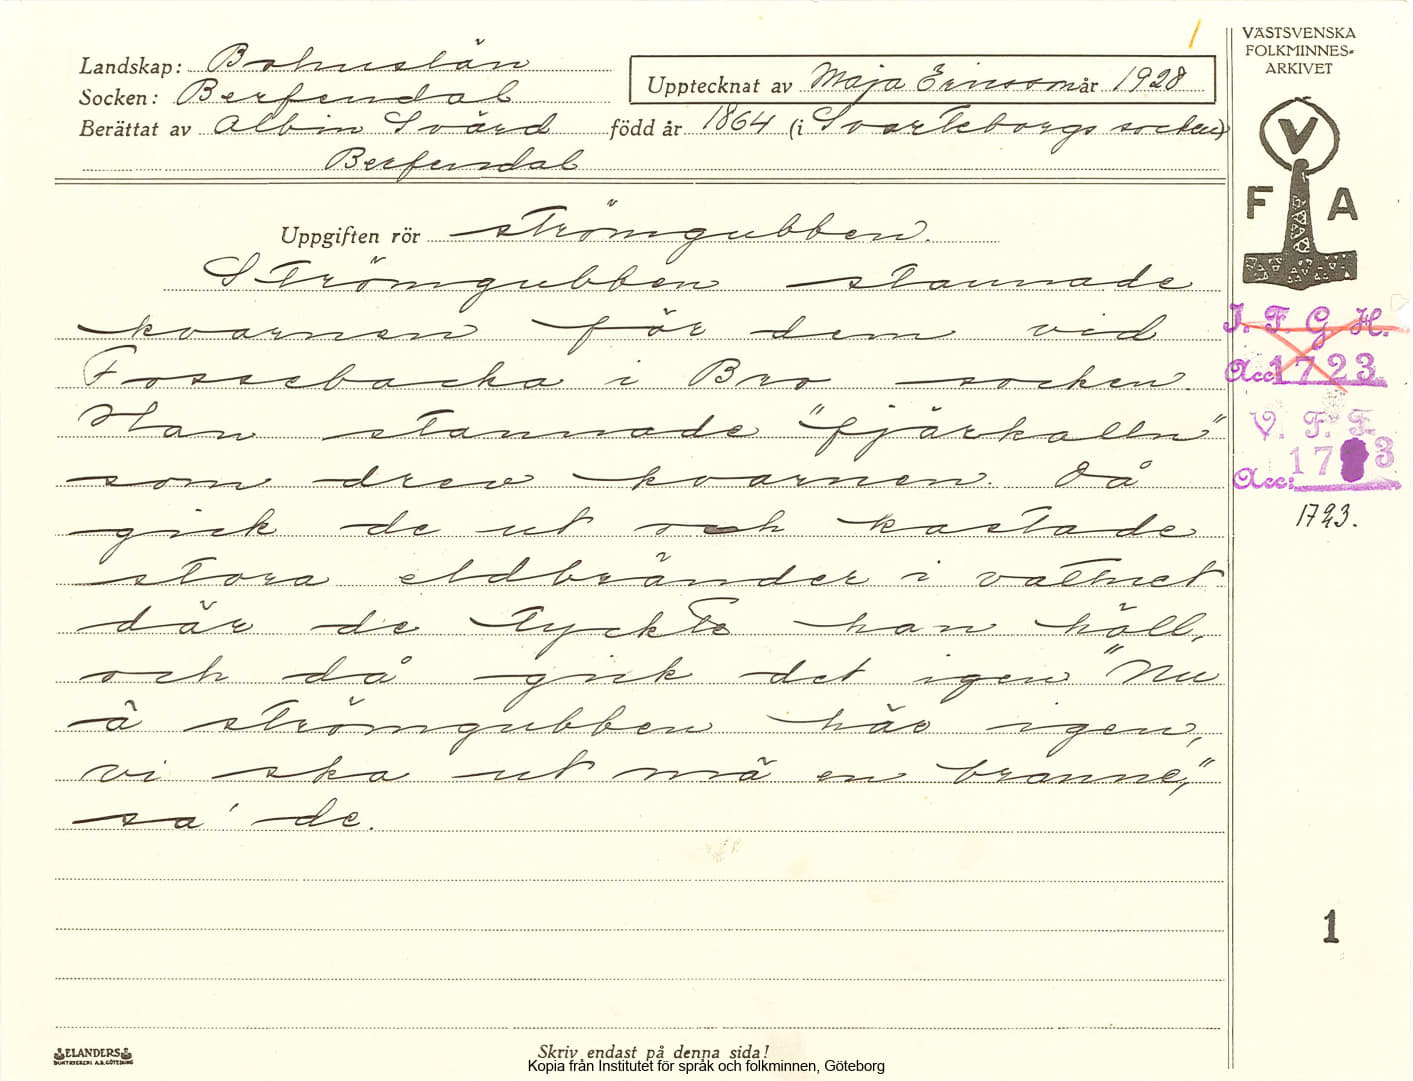 Landskap: Bohuslän
Socken: Berfendal
Upptecknat av Maja Ericsson år 1928
Berättat av Albin Svärd född år 1864 (i Svarteborgs socken)
Berfendal
Uppgiften rör strömgubben.
Strömgubben stannade
kvarnen för dem vid
Fossebacka i Bro socken.
Han stannade "fjärkalln"
som drev kvarnen. Då
gick de ut och kastade
stora eldbränder i vattnet
där de tyckte han höll,
och då gick det igen "Nu
ä strömgubben här igen,
vi ska ut mä en branne,"
sa' de.
VÄSTSVENSKA
FOLKMINNES-
ARKIVET
V
F A
I. F. G. H.
Acc 1723
V. F. F.
Acc: 17 3
1723.
1
ELANDERS
BOKTRYCKERI A.B. GÖTEBORG
Skriv endast på denna sida!
Kopia från Institutet för språk och folkminnen, Göteborg